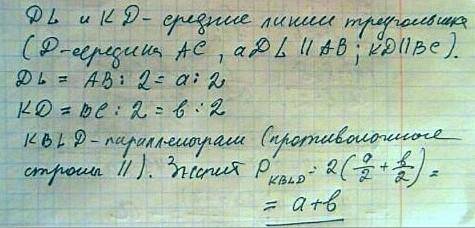 DL и KD - средние линии треугольника
(D-середина AC, а DL || AB; KD || BC).
DL = AB : 2 = a : 2
KD = BC : 2 = b : 2
KBLD - параллелограм (противоположные
стороны ||). Значит P_KBLD = 2(a/2 + b/2) =
= a+b